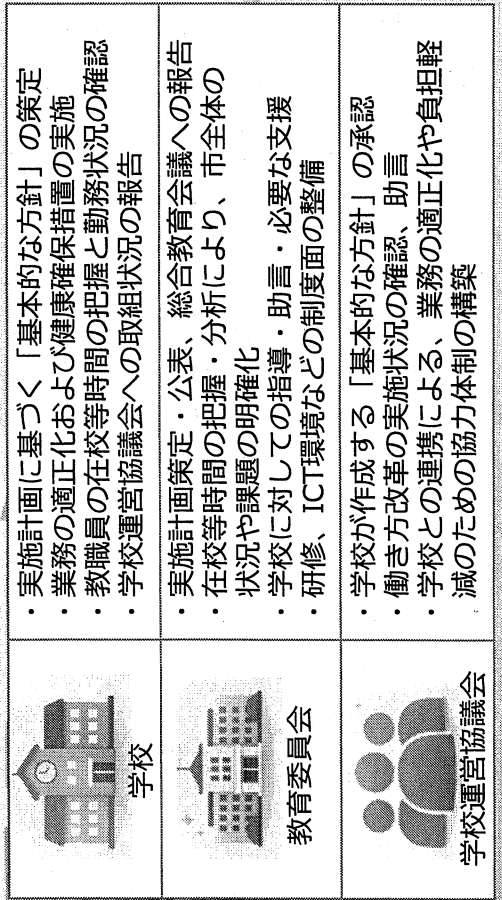 学校
・実施計画に基づく「基本的な方針」の策定
・業務の適正化および健康確保措置の実施
・教職員の在校等時間の把握と勤務状況の確認
・学校運営協議会への取組状況の報告
教育委員会
・実施計画策定・公表、総合教育会議への報告
・在校等時間の把握・分析により、市全体の
状況や課題の明確化
・学校に対しての指導・助言・必要な支援
・研修、ICT環境などの制度面の整備
学校運営協議会
・学校が作成する「基本的な方針」の承認
・働き方改革の実施状況の確認、助言
・学校との連携による、業務の適正化や負担軽
減のための協力体制の構築